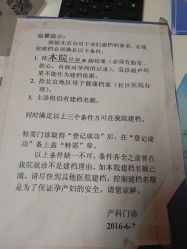 温馨提示：
根据北京市对于孕妇建档的要求，在我
院建档必须满足以下条件：
1. 在本院早孕B超结果（必须有胎芽、
胎心，有核对孕周的记录），急诊超声结
果不能作为建档依据。
2. 持北京地区母子健康档案（社区医院办
理）。
3. 主诊组仍有建档名额。
同时满足以上三个条件方可在我院建档。
特需门诊取得“登记成功”后，在“登记成
功”条上盖“特需”章。
以上条件缺一不可，条件齐全之前曾在
我院就诊不是建档理由。如本院建档名额已
满，请尽快到其他医院建档。控制建档名额
是为了保证孕产妇的安全，请您谅解。
产科门诊
2016-6-